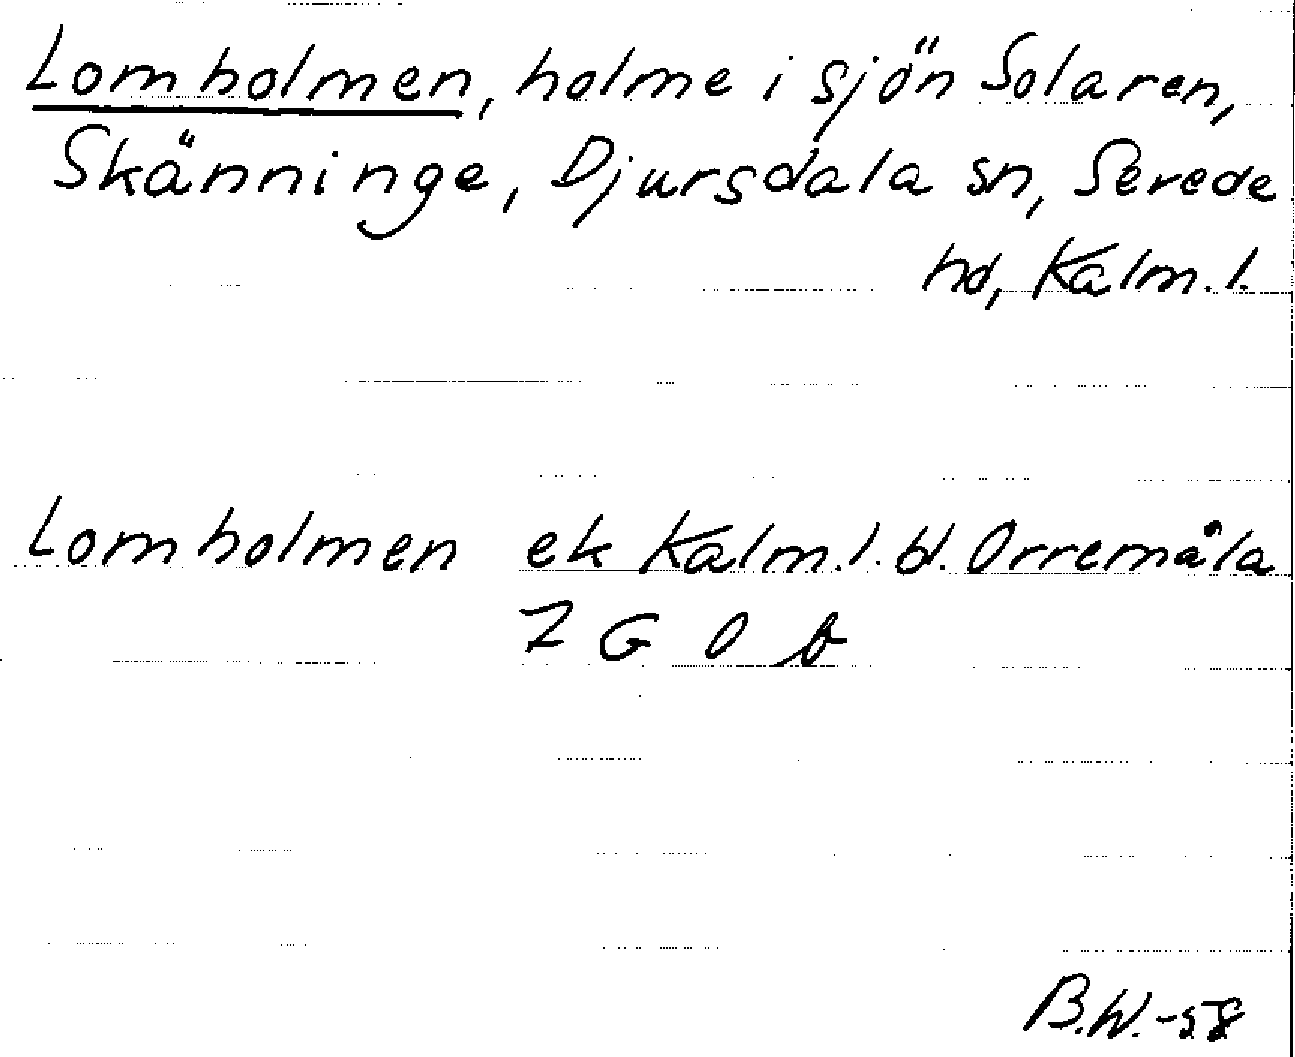 Lomholmen, holme i sjön Solaren,
Skänninge, Djursdala sn, Sevede
hd, Kalm.l.
Lomholmen ek Kalm.l. bl. Orremåla
7 G 0 b
B.W.-58